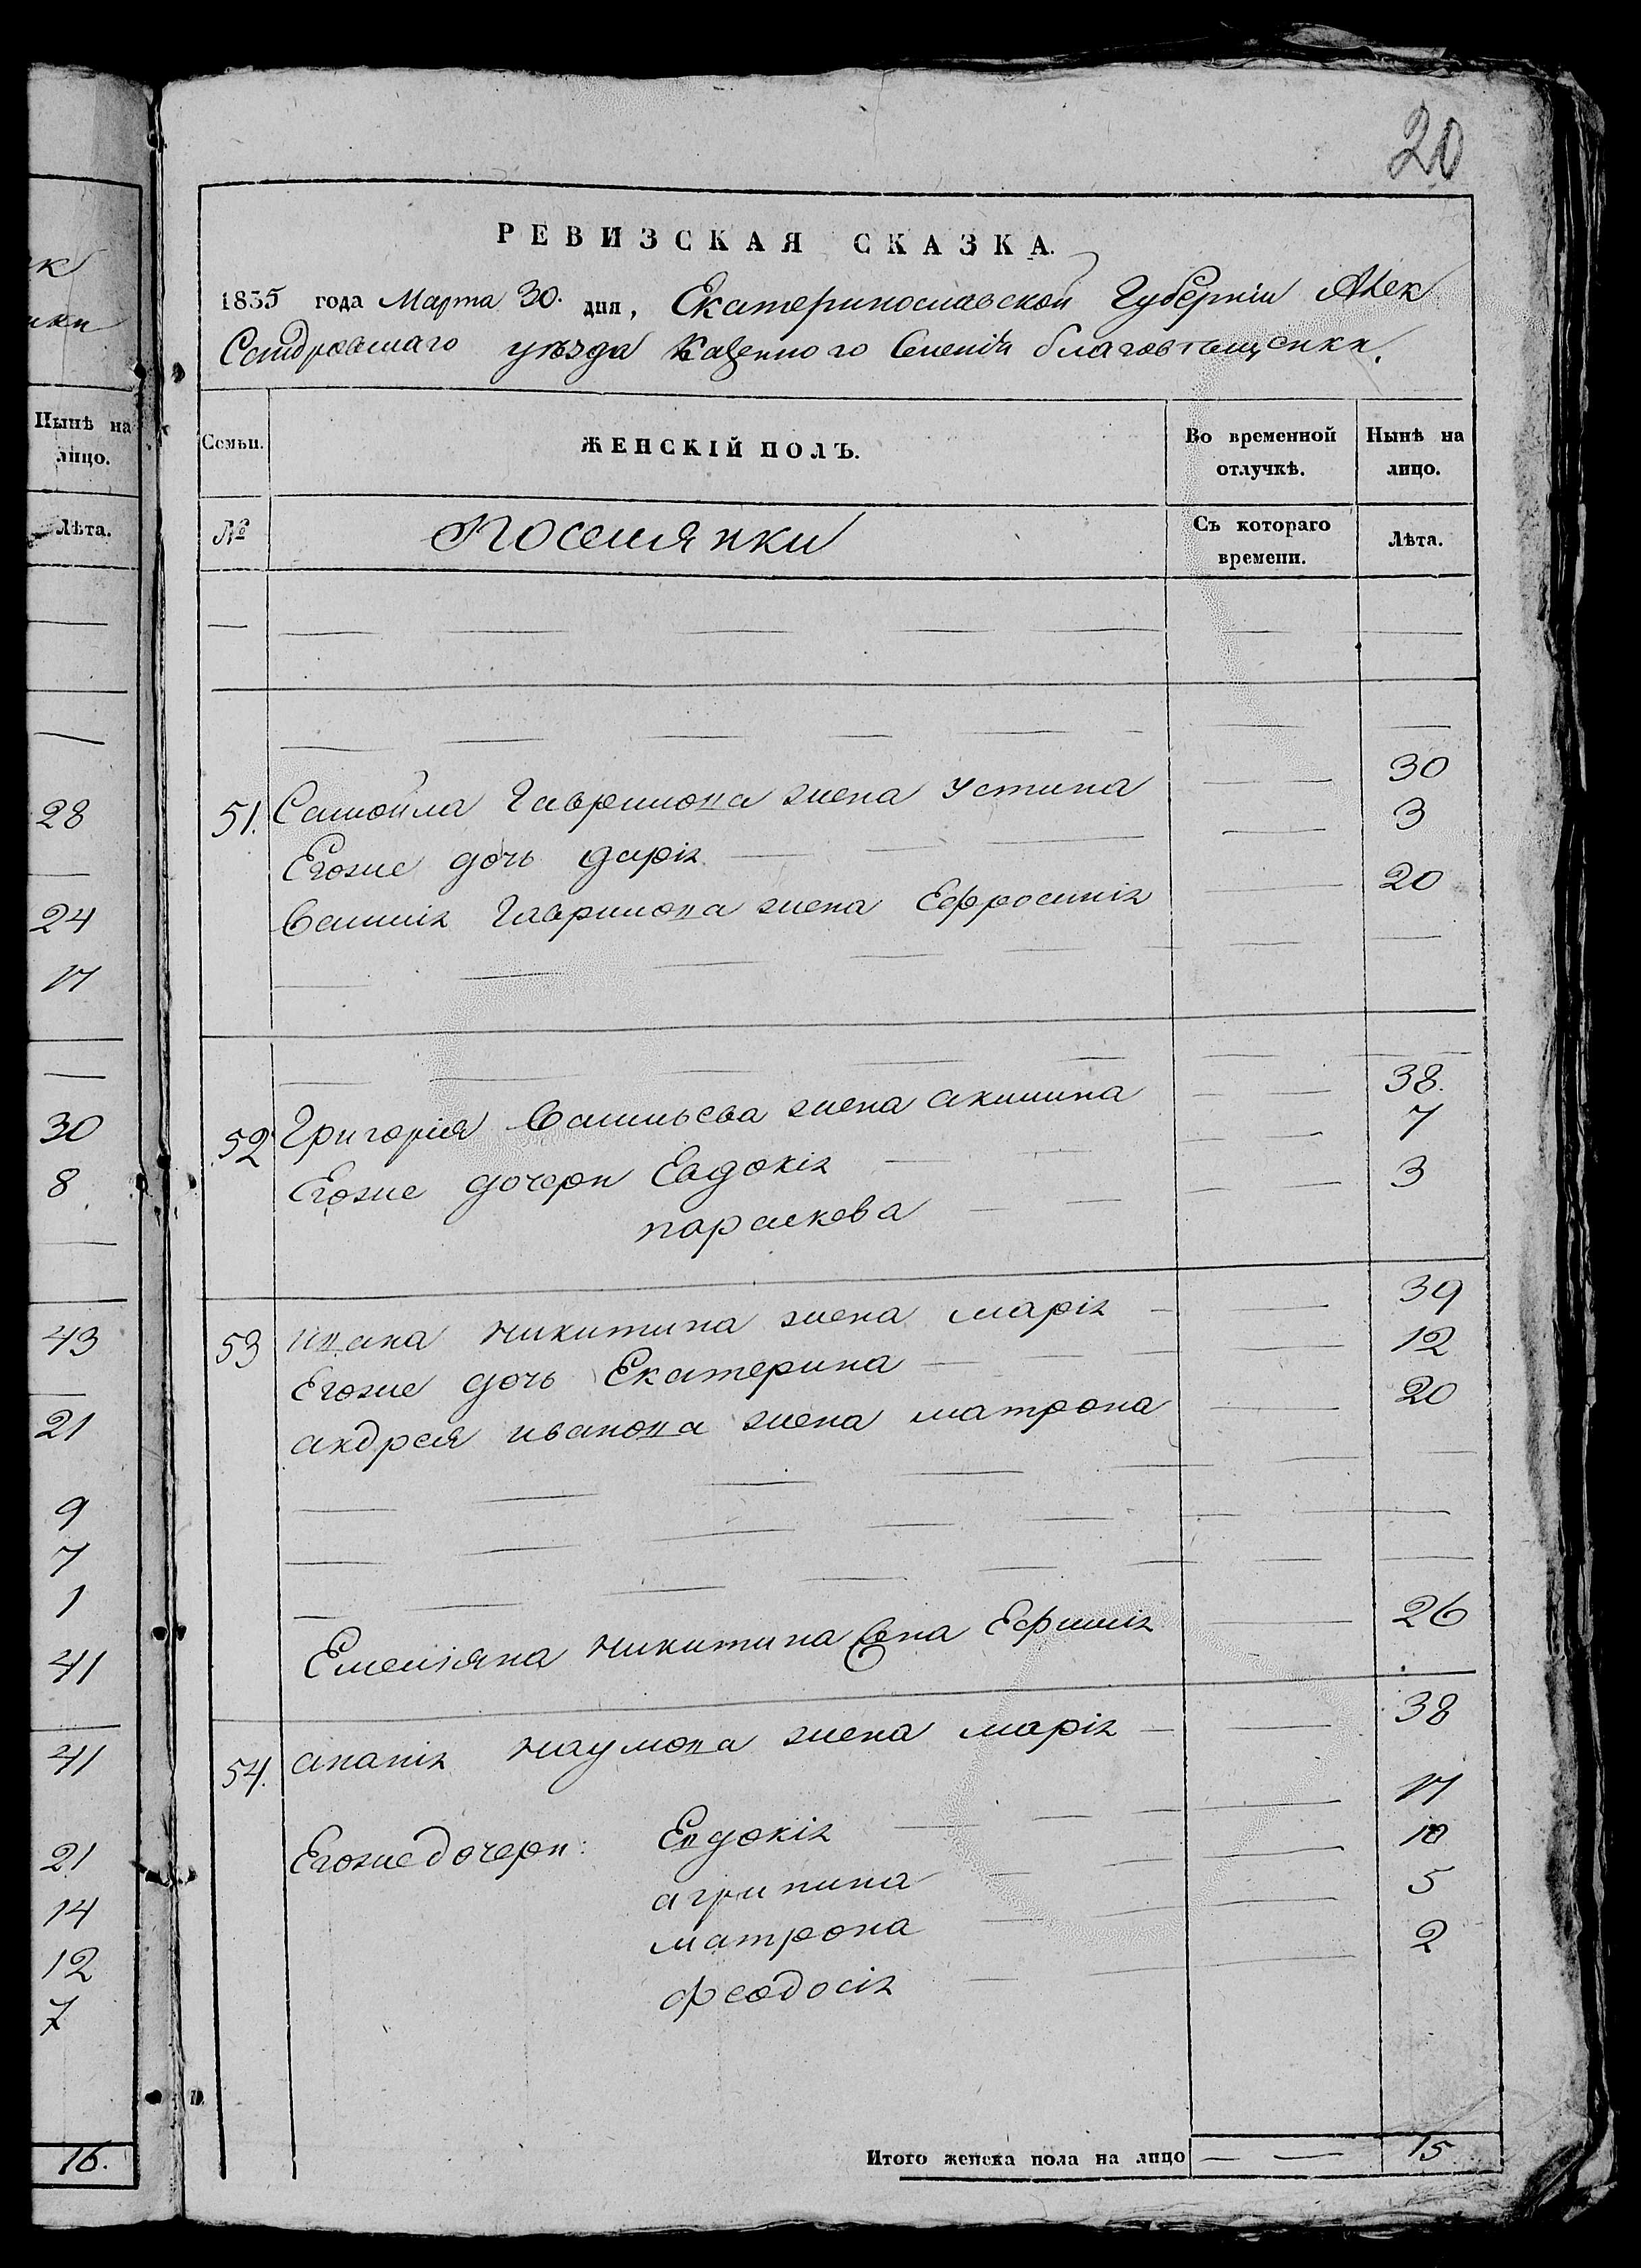 20
РЕВИЗСКАЯ СКАЗКА.
1835 года Марта 30. дня, Екатеринославской Губерніи Алек
Сандровскаго уѣзда Казенного Селенія благовѣщенки.
Нынѣ на лицо.
Лѣта.
28
24
17
30
8
43
21
9
7
1
41
41
21
14
12
7
16.
Семьи. ЖЕНСКІЙ ПОЛЪ. Во временной отлучкѣ. Нынѣ на лицо.
№ Поселянки Съ котораго времени. Лѣта.
51. Самойла Гаврилова жена Устина 30
Егоже дочь дарія 3
Василія Гаврилова жена Ефросинія 20
52 Григорія Васильева жена акилина 38.
Егоже дочери Евдокія 7
параскева 3
53 ивана Никитина жена марія 39
Егоже дочь Екатерина 12
андрея иванова жена матрона 20
Емельяна Никитина жена Ефимія 26
54. ананія Наумова жена марія 38
Егоже дочери: Евдокія 17
агрипина 10
матрона 5
феодосія 2
Итого женска пола на лицо 15